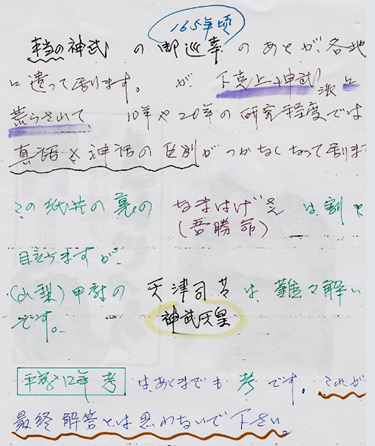 165年頃
本当の神武 の 御巡幸 のあとが各地
に遺って居ります。 が 下克上神武 派に
荒らされて 10年や20年の研究程度では
真話と神話の区別がつかなくなって居ります
この紙共の裏の なまはげさえ は割と
(吾勝命)
目立ちますが
(山梨)甲府の 天津司芸 は 難々解い
です。 神武天皇
平成12年 考 はあくまでも 考 です。これが
最終解答とは思わないで下さい。